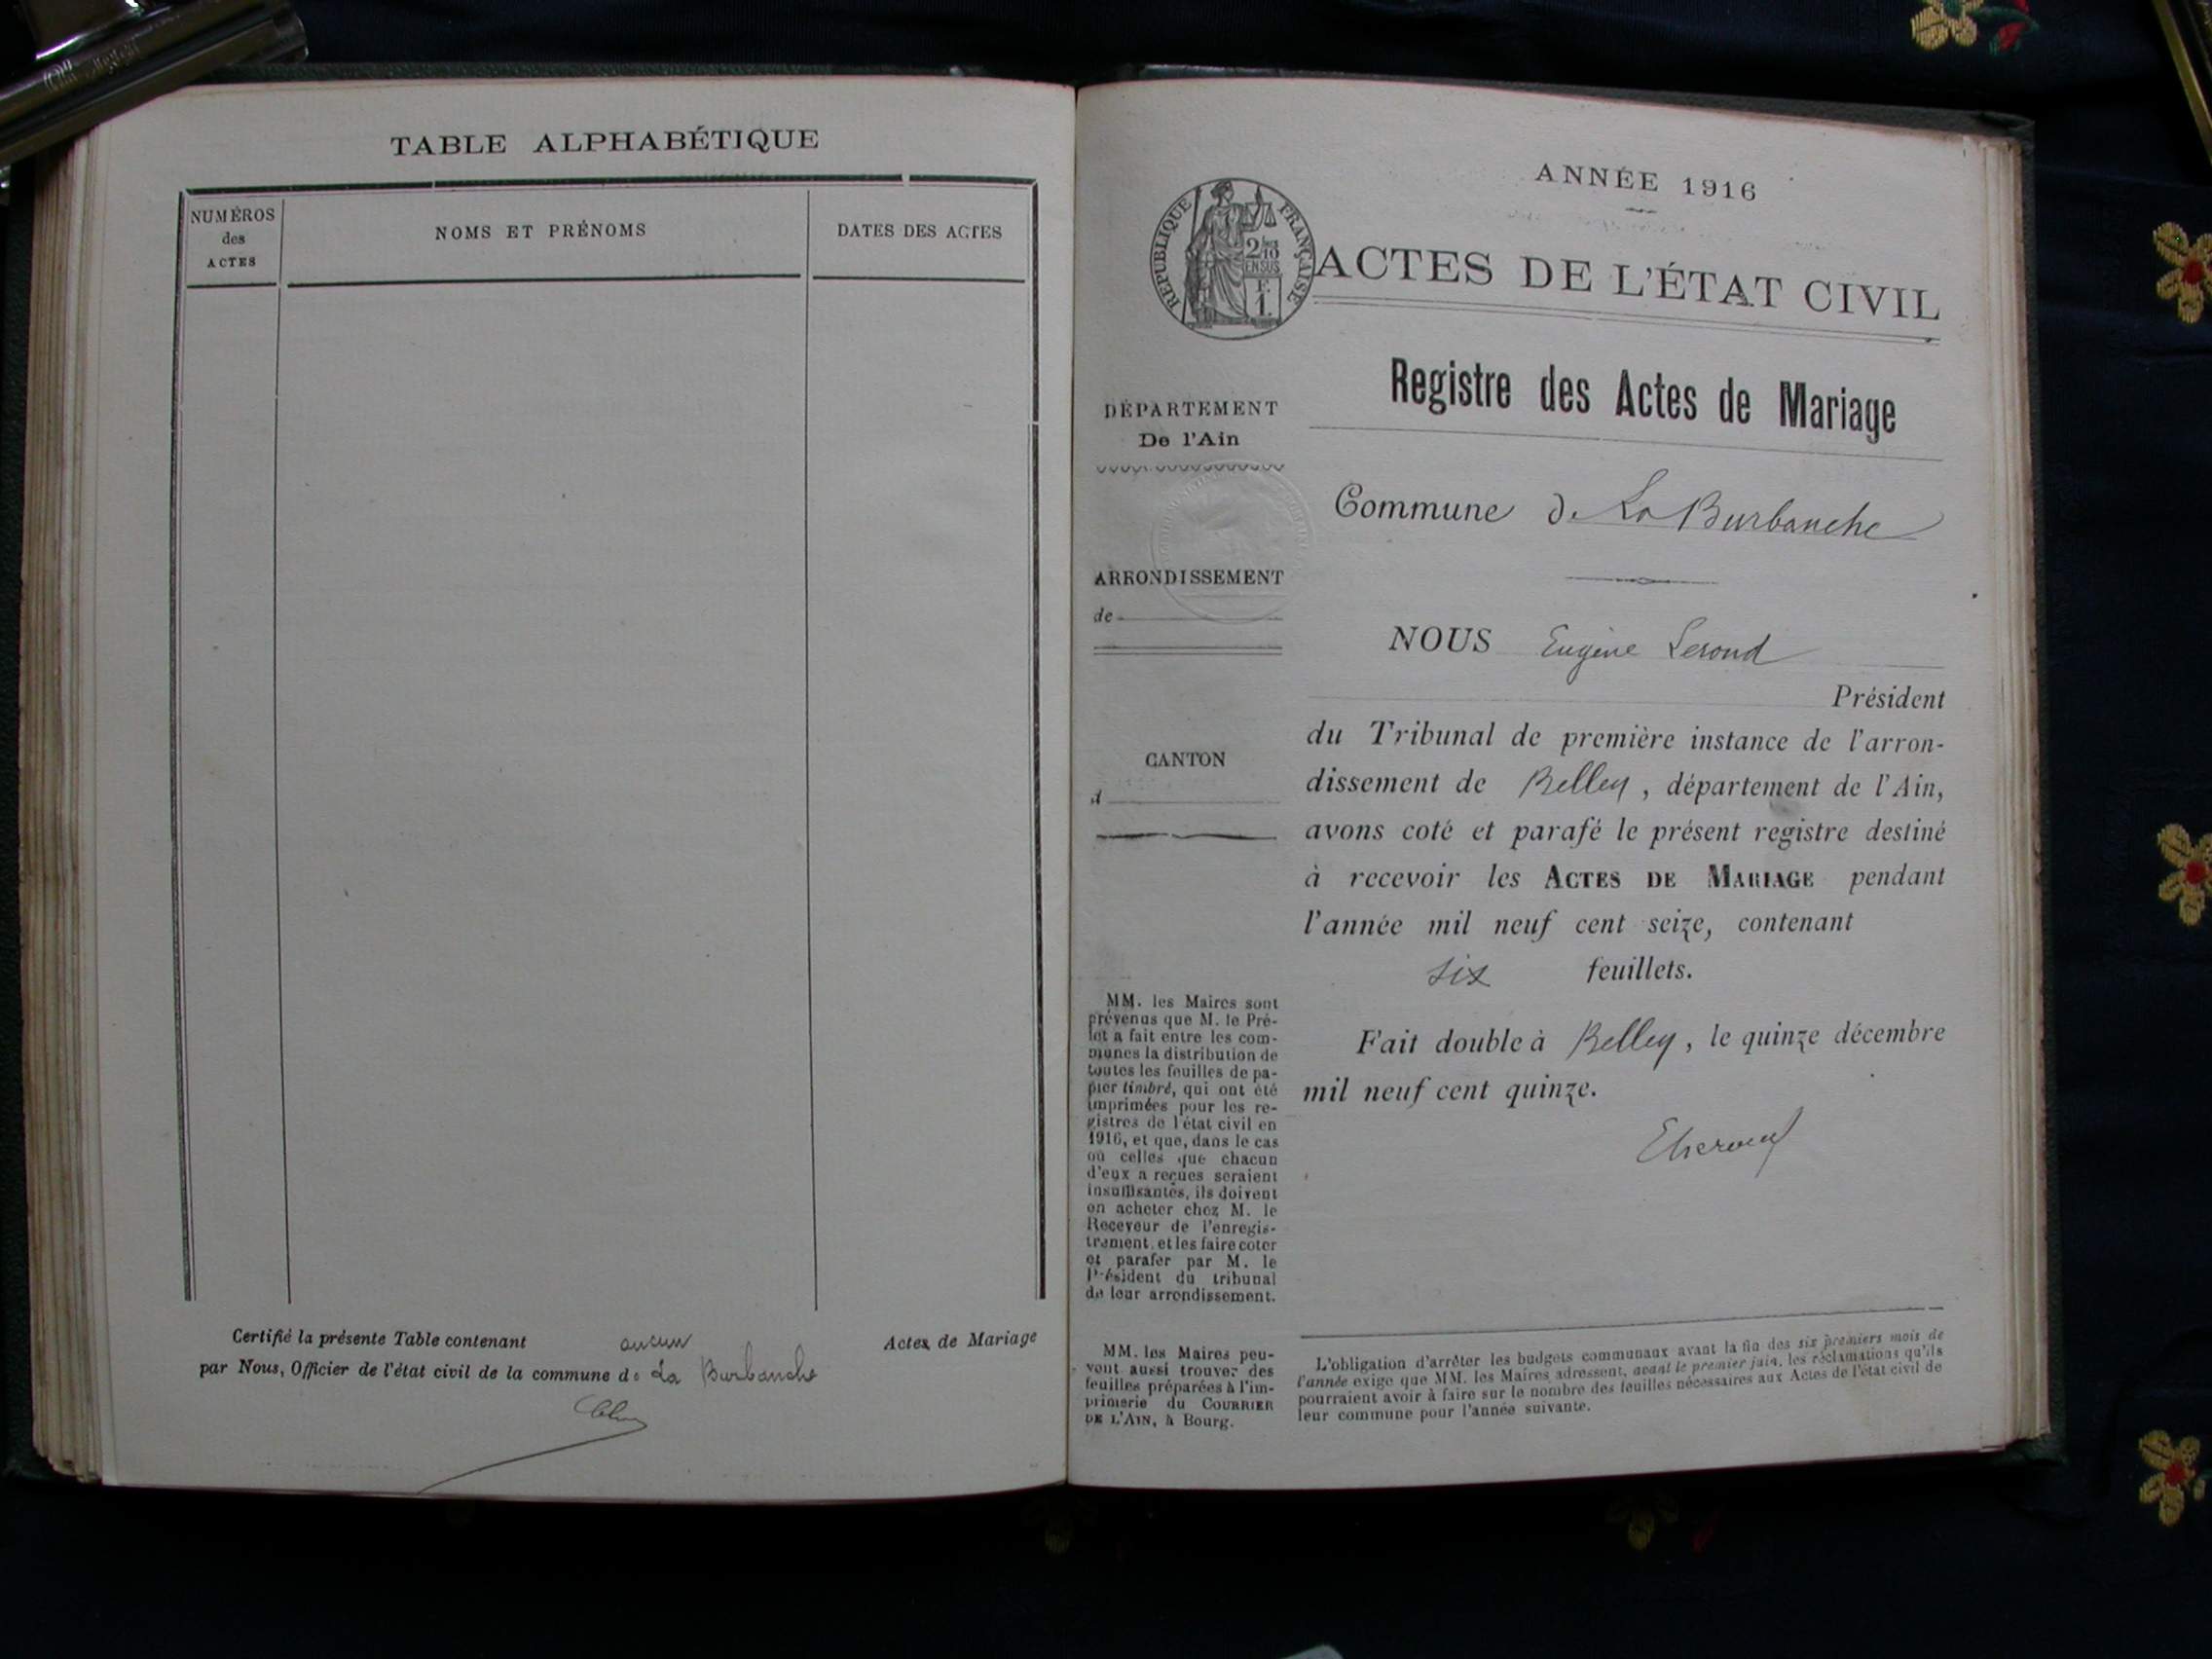 TABLE ALPHABÉTIQUE
NUMÉROS
des
ACTES
NOMS ET PRÉNOMS
DATES DES ACTES
Certifié la présente Table contenant aucun Actes de Mariage
par Nous, Officier de l'état civil de la commune de La Burbanche
ANNÉE 1916
RÉPUBLIQUE FRANÇAISE
2/10
EN SUS
F.
1.
ACTES DE L'ÉTAT CIVIL
Registre des Actes de Mariage
DÉPARTEMENT
De l'Ain
Commune de La Burbanche
ARRONDISSEMENT
de
NOUS Eugène
Président
du Tribunal de première instance de l'arron-
dissement de Belley, département de l'Ain,
avons coté et parafé le présent registre destiné
à recevoir les ACTES DE MARIAGE pendant
l'année mil neuf cent seize, contenant
six feuillets.
Fait double à Belley, le quinze décembre
mil neuf cent quinze.
CANTON
d
MM. les Maires sont
prévenus que M. le Pré-
fet a fait entre les com-
munes la distribution de
toutes les feuilles de pa-
pier timbré, qui ont été
imprimées pour les re-
gistres de l'état civil en
1916, et que, dans le cas
où celles que chacun
d'eux a reçues seraient
insuffisantes, ils doivent
en acheter chez M. le
Receveur de l'enregis-
trement, et les faire coter
et parafer par M. le
Président du tribunal
de leur arrondissement.
MM. les Maires peu-
vent aussi trouver des
feuilles préparées à l'im-
primerie du COURRIER
DE L'AIN, à Bourg.
L'obligation d'arrêter les budgets communaux avant la fin des six premiers mois de
l'année exige que MM. les Maires adressent, avant le premier juin, les réclamations qu'ils
pourraient avoir à faire sur le nombre des feuilles nécessaires aux Actes de l'état civil de
leur commune pour l'année suivante.